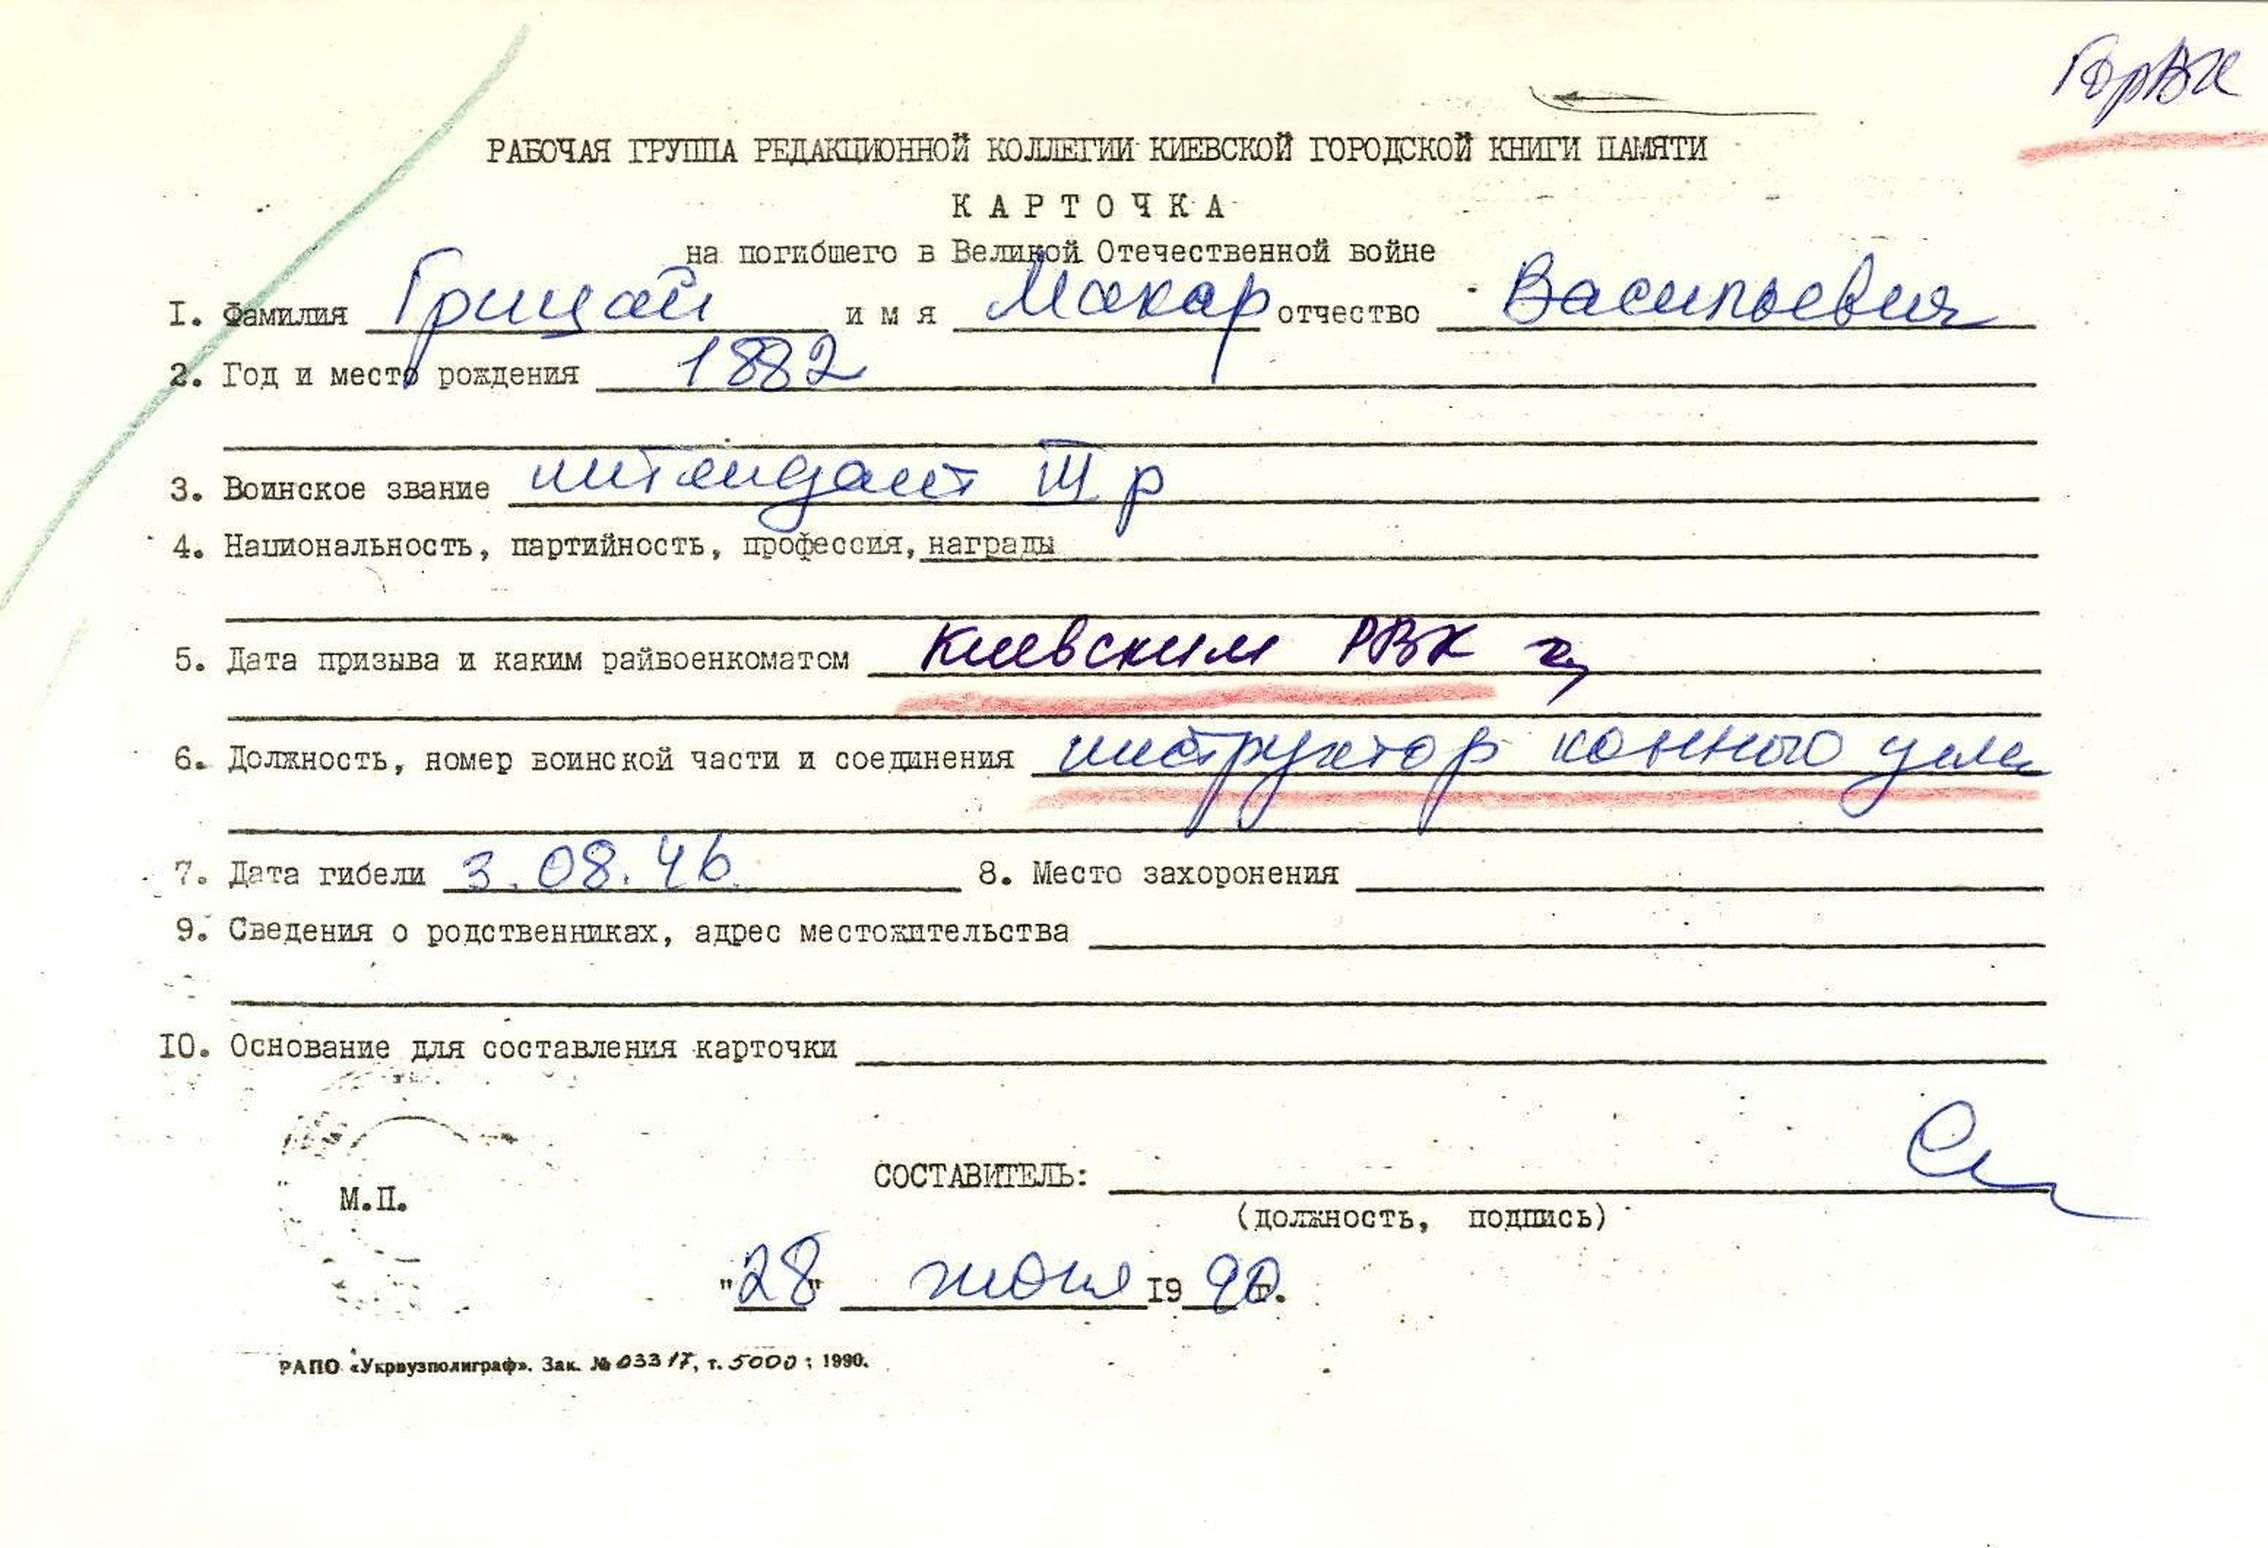 ГорВК
РАБОЧАЯ ГРУППА РЕДАКЦИОННОЙ КОЛЛЕГИИ КИЕВСКОЙ ГОРОДСКОЙ КНИГИ ПАМЯТИ
КАРТОЧКА
на погибшего в Великой Отечественной войне
I. Фамилия Грицай имя Макар отчество Васильевич
2. Год и место рождения 1882
3. Воинское звание интендант III р
4. Национальность, партийность, профессия, награды
5. Дата призыва и каким райвоенкоматом Киевским РВК
6. Должность, номер воинской части и соединения инструктор конного
7. Дата гибели 3.08.46. 8. Место захоронения
9. Сведения о родственниках, адрес местожительства
IO. Основание для составления карточки
СОСТАВИТЕЛЬ:
М.П.
(должность, подпись)
"28" июня 19 90 г.
РАПО «Укрвузполиграф». Зак. № 03317, т. 5000; 1990.